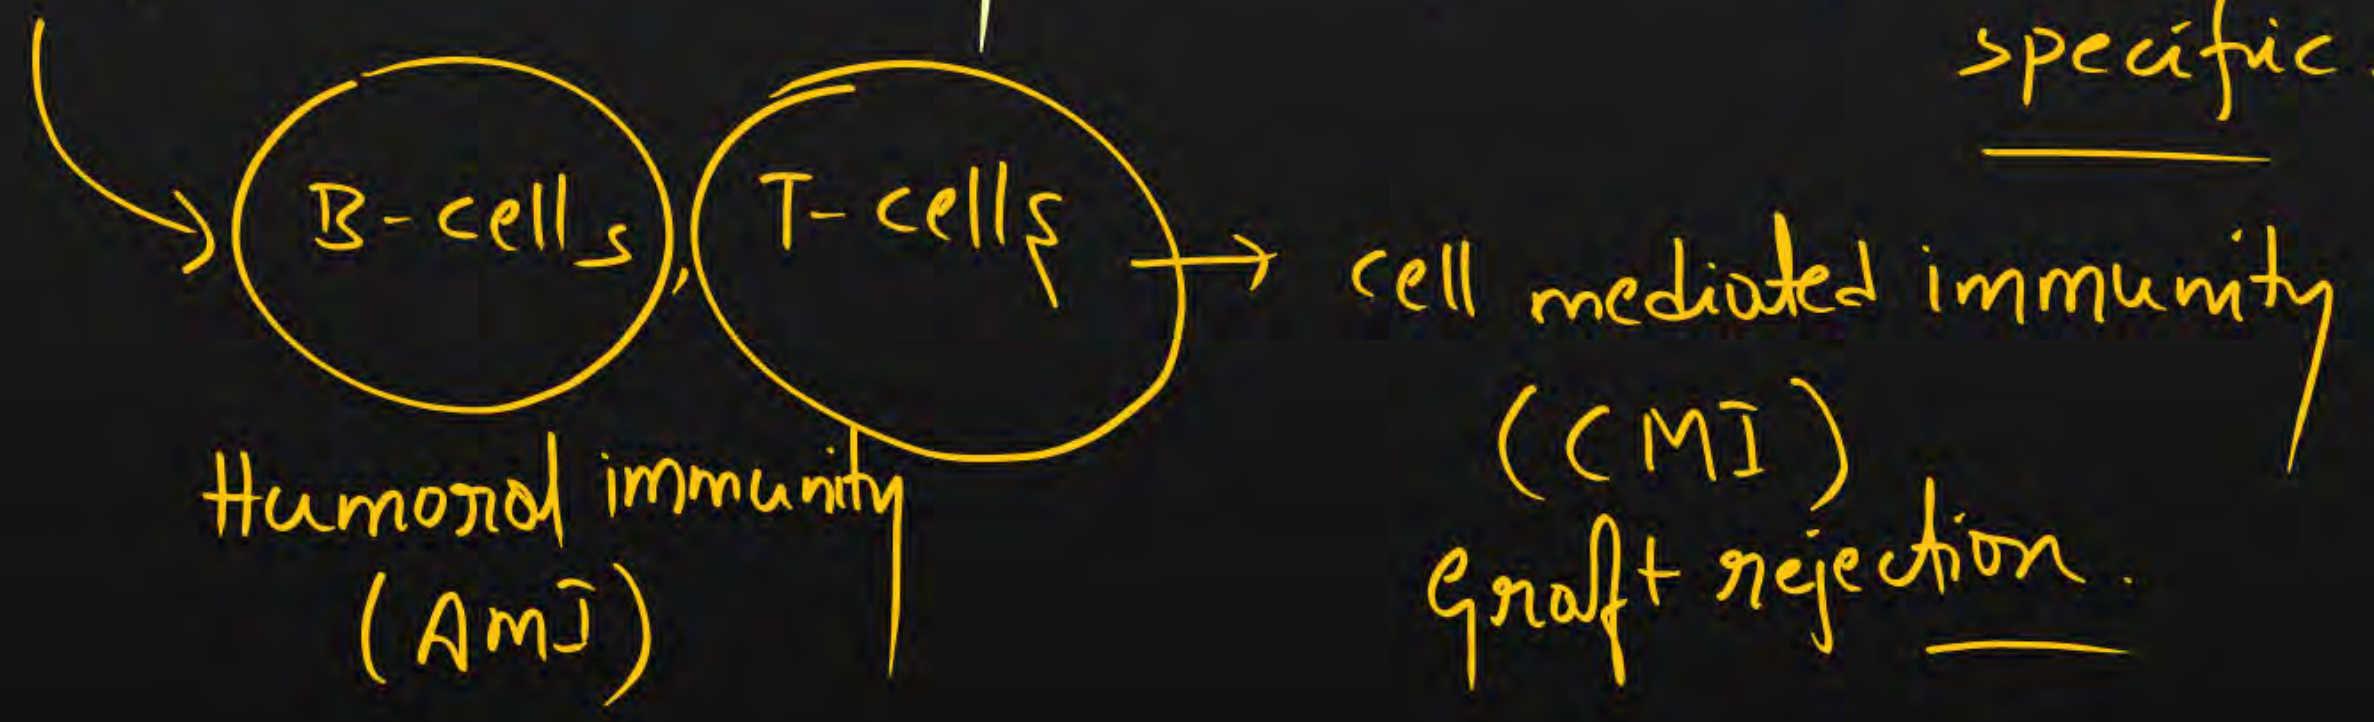 specific.
B-cells, T-cells → cell mediated immunity
(CMI)
Humoral immunity
(AMI)
Graft rejection.